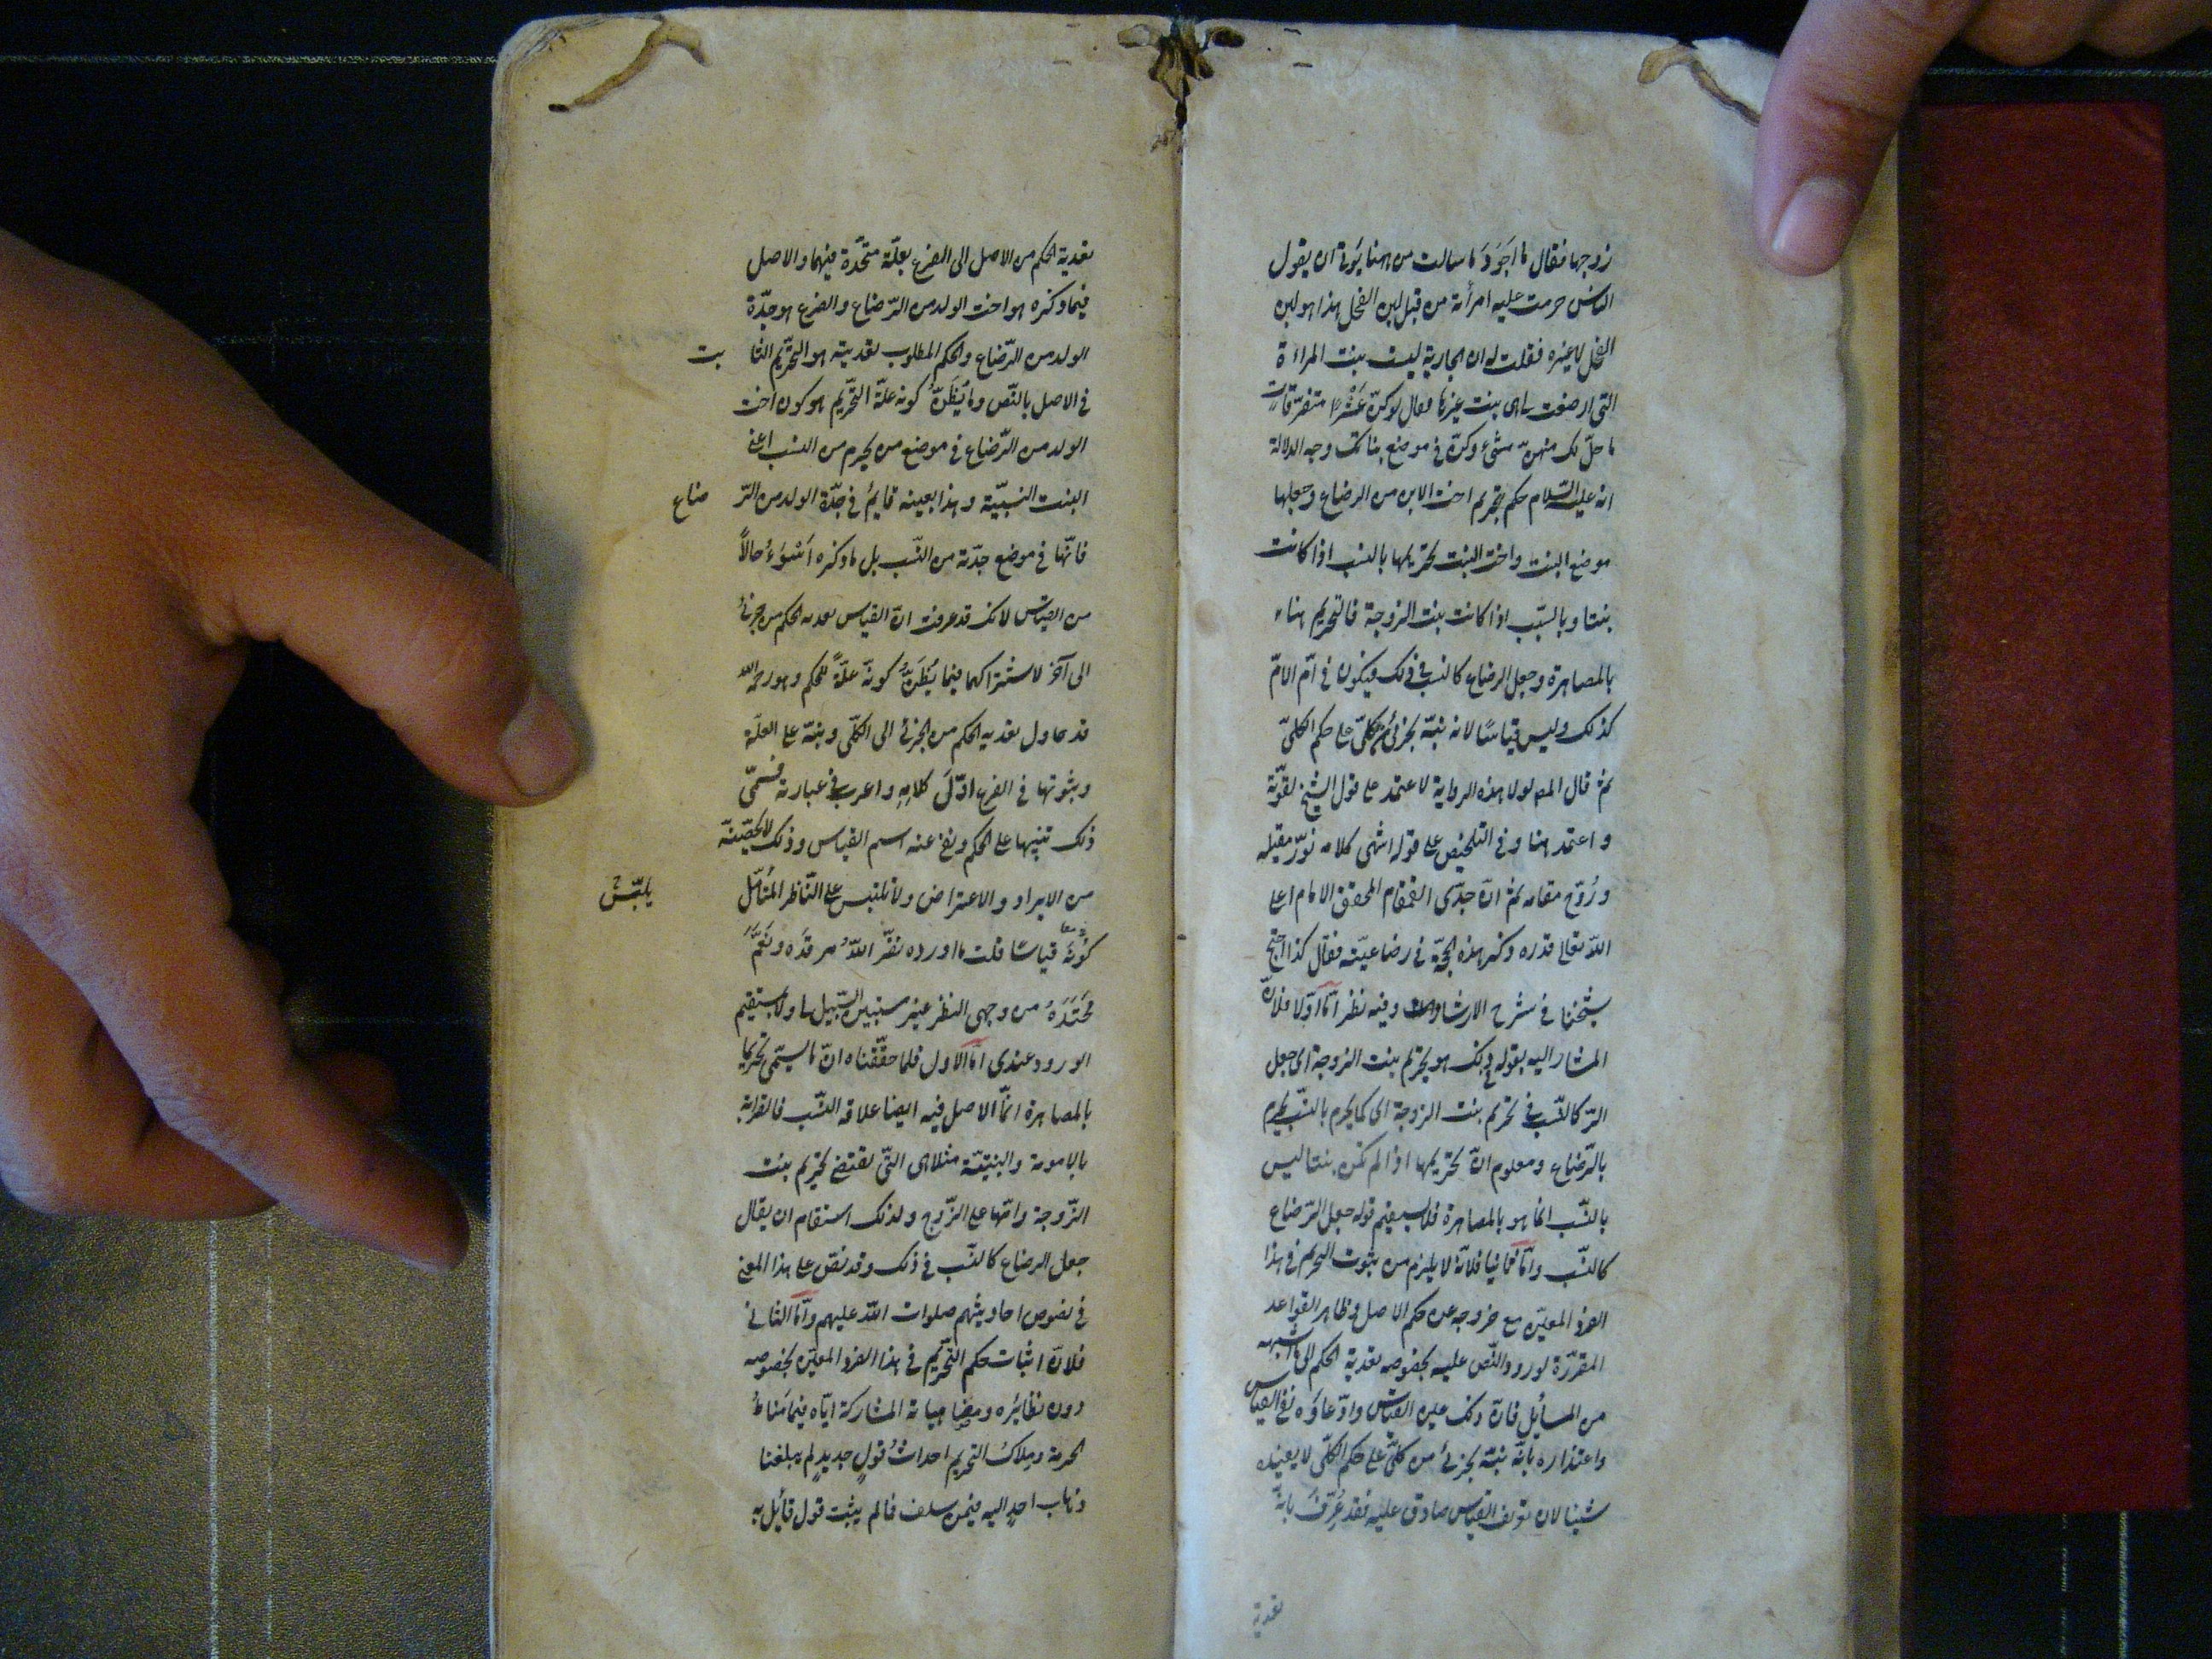 زوجها فقال ما اجود ما سالت من ههنا يؤتى ان يقول
الناس حرمت عليه امرأته من قبل لبن الفحل هذا هو لبن
الفحل لا غيره فقلت له ان الجارية ليست بنت المراة
التي ارضعت لي هي بنت غيرها فقال لو كنّ عشرا متفرقات
ما حلّ لك منهنّ شيء وكنّ في موضع بناتك وجه الدلالة
انه عليه السّلام حكم بتحريم اخت الابن من الرضاع وجعلها
موضع البنت واخت البنت تحريمها بالنسب اذا كانت
بنتا وبالسّبب اذا كانت بنت الزوجة فالتحريم هنا
بالمصاهرة وجعل الرضاع كالنسب في ذلك فيكون في امّ الامّ
كذلك وليس قياسًا لانه نبّه بجزئي من كليّ على حكم الكليّ
ثم قال المص لولا هذه الرواية لاعتمد على قول الشيخ لقوّته
واعتمد هنا وفي التلخيص على قوله انتهى كلامه نوّر مقيله
وروّح مقامه ثم انّ جدّي القمقام المحقق الامام اعلى
اللّه تعالى قدره ذكر هذه الحجّة في رضاعيّته فقال كذا احتج
شيخنا في شرح الارشاد وفيه نظر امّا اوّلا فلانّ
المشار اليه بقوله في ذلك هو تحريم بنت الزوجة اي جعل
الرّ كالنّسب في تحريم بنت الزوجة اي كما يحرم بالنّسب يحرم
بالرّضاع ومعلوم انّ تحريمها اذا لم تكن بنتا ليس
بالنّسب انما هو بالمصاهرة فلا يستقيم قوله جعل الرّضاع
كالنّسب وامّا ثانيا فلانّه لا يلزم من ثبوت التحريم في هذا
الفرد المعيّن مع خروجه عن حكم الاصل في ظاهر القواعد
المقرّرة لورود النّص عليه بخصوصه تعدية الحكم الى ما اشبهه
من المسائل فانّ ذلك عين القياس وادّعاؤه نفي القياس
واعتذاره بانّه نبّه بجزئي من كليّ على حكم الكلّي لا يفيده
شيئا لان تعريف القياس صادق عليه فقد عُرّف بانّه
تعدية
تعدية الحكم من الاصل الى الفرع بعلّة متحّدة فيهما والاصل
فيما ذكره هو اخت الولد من الرّضاع والفرع هو جدّة
الولد من الرّضاع والحكم المطلوب تعديته هو التحريم الثابت
في الاصل بالنّص وما يُظَنّ كونه علّة التّحريم هو كون اخت
الولد من الرّضاع في موضع من يحرم من النسب اعني
البنت النّسبيّة وهذا بعينه قايمٌ في جدّة الولد من الرّضاع
فانّها في موضع جدّته من النّسب بل ما ذكره اَسْوَءُ حالاً
من القياس لانك قد عرفت انّ القياس تعدية الحكم من جزئي
الى آخر لاشتراكهما فيما يُظَنُّ كونه علّةً للحكم وهو رحمه الله
قد حاول تعدية الحكم من الجزئي الى الكلّي ونبّه على العلّة
وثبوتها في الفرع اوّلَ كلامِهِ واعرب في عبارته فسمّى
ذلك تنبيها على الحكم ونفى عنه اسم القياس وذلك لا يحصّنه
من الايراد والاعتراض ولا يلتبس على النّاظر المتأمّل
يلبّسُ
كونَه قياسًا قلت ما اورده نضّر اللّهُ مرقدَه ونعّم
مَحْتَدَهُ من وجهي النظر غير مستبين السّبيل ولا مستقيم
الورود عندي امّا الاول فلما حقّقناه انّ ما يسمّى تحريما
بالمصاهرة انّما الاصل فيه ايضا علاقة النّسب فالقرابة
بالامومة والبنتيّة مثلا هي التّي تقتضي تحريم بنت
الزّوجة وامّها على الزّوج ولذلك استقام ان يقال
جعل الرضاع كالنّسب في ذلك وقد نصّ على هذا المعنى
في نصوص احاديثهم صلوات اللّه عليهم وامّا الثاني
فلانّ اثبات حكم التّحريم في هذا الفرد المعيّن بخصوصه
دون نظائره ومضاهياته المشاركة ايّاه فيما مناطُ
الحرمة وملاكُ التحريم احداثُ قولٍ جديدٍ لم يبلغنا
ذهاب احدٍ اليه فيمن سلف فما لم يثبت قول قائل به